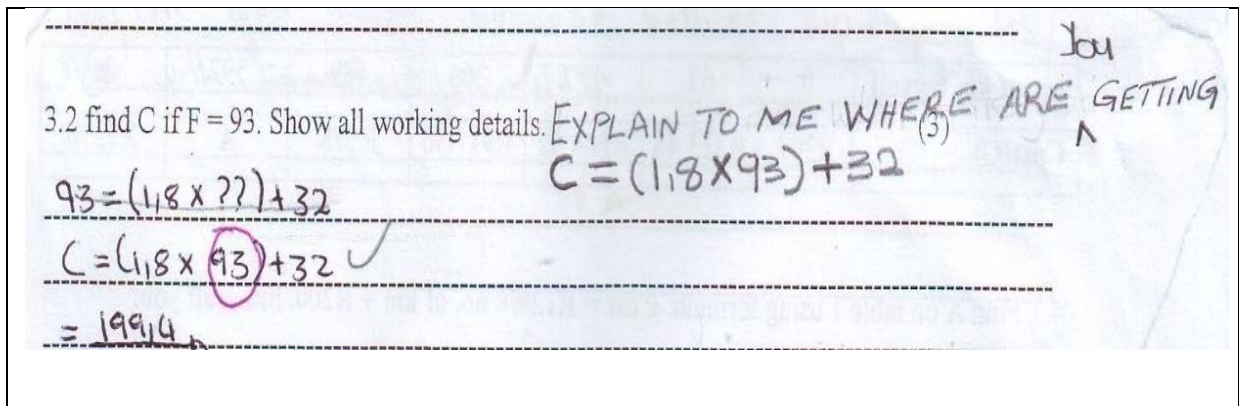 you
3.2 find C if F = 93. Show all working details. EXPLAIN TO ME WHERE ARE ^ GETTING
(3)
C = (1,8 × 93) + 32
93 = (1,8 × ??) + 32
C = (1,8 × 93) + 32 ✓
= 199,4